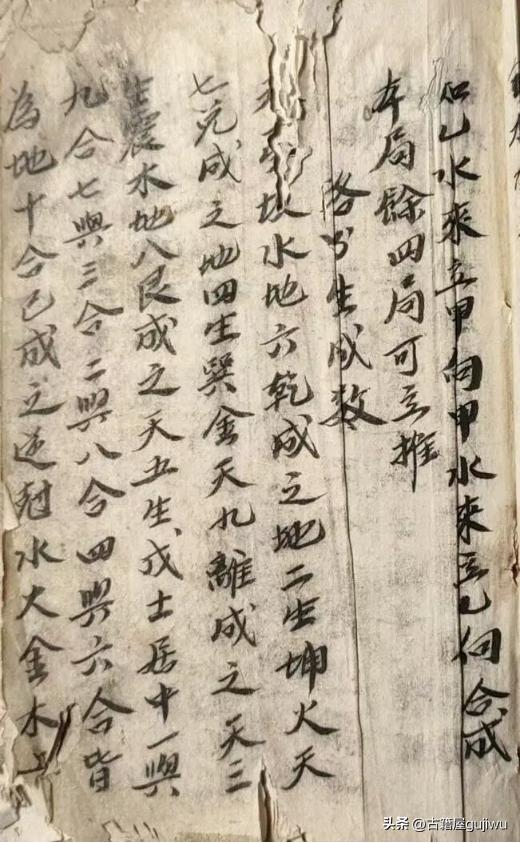 如乙水來立甲向甲水來立乙向合成
本局餘四局可立推
各分生成数
坎水地六乾成之地二生坤火天
七兑成之地四生巽金天九離成之天三
生震木地八艮成之天五生戊土居中一與
九合七與三合二與八合四與六合皆
為地十合己成之逆尅水火金木
头条 @古籍屋gujiwu